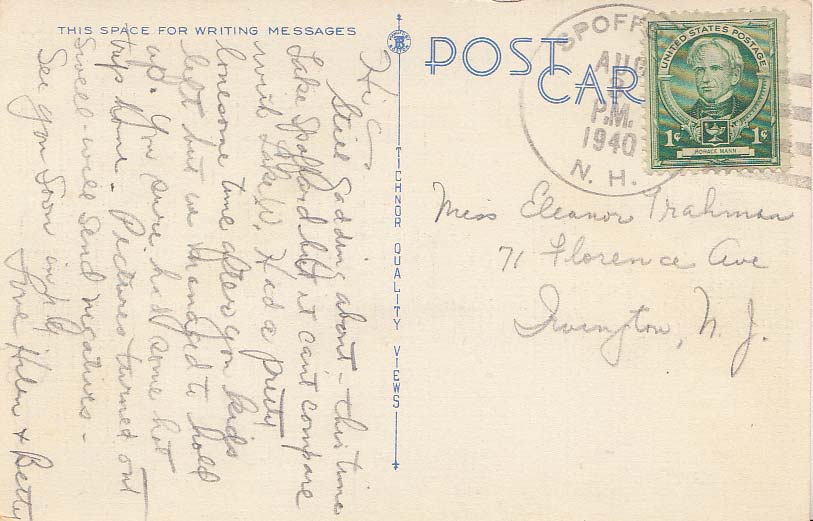 THIS SPACE FOR WRITING MESSAGES
Hi E -
Still gadding about - this time
Lake Spofford but it can't compare
with Lake W. Had a pretty
lonesome time after you kids
left but we managed to hold
up. You sure had some hot
trip home - Pictures turned out
swell - will send negatives -
See you soon
Love Helen + Betty
TICHNOR QUALITY VIEWS
POST CARD
SPOFFO
AUG
5
P.M.
1940
N. H.
UNITED STATES POSTAGE
1¢ 1¢
HORACE MANN
Miss Eleanor Trahman
71 Florence Ave
Irvington, N. J.